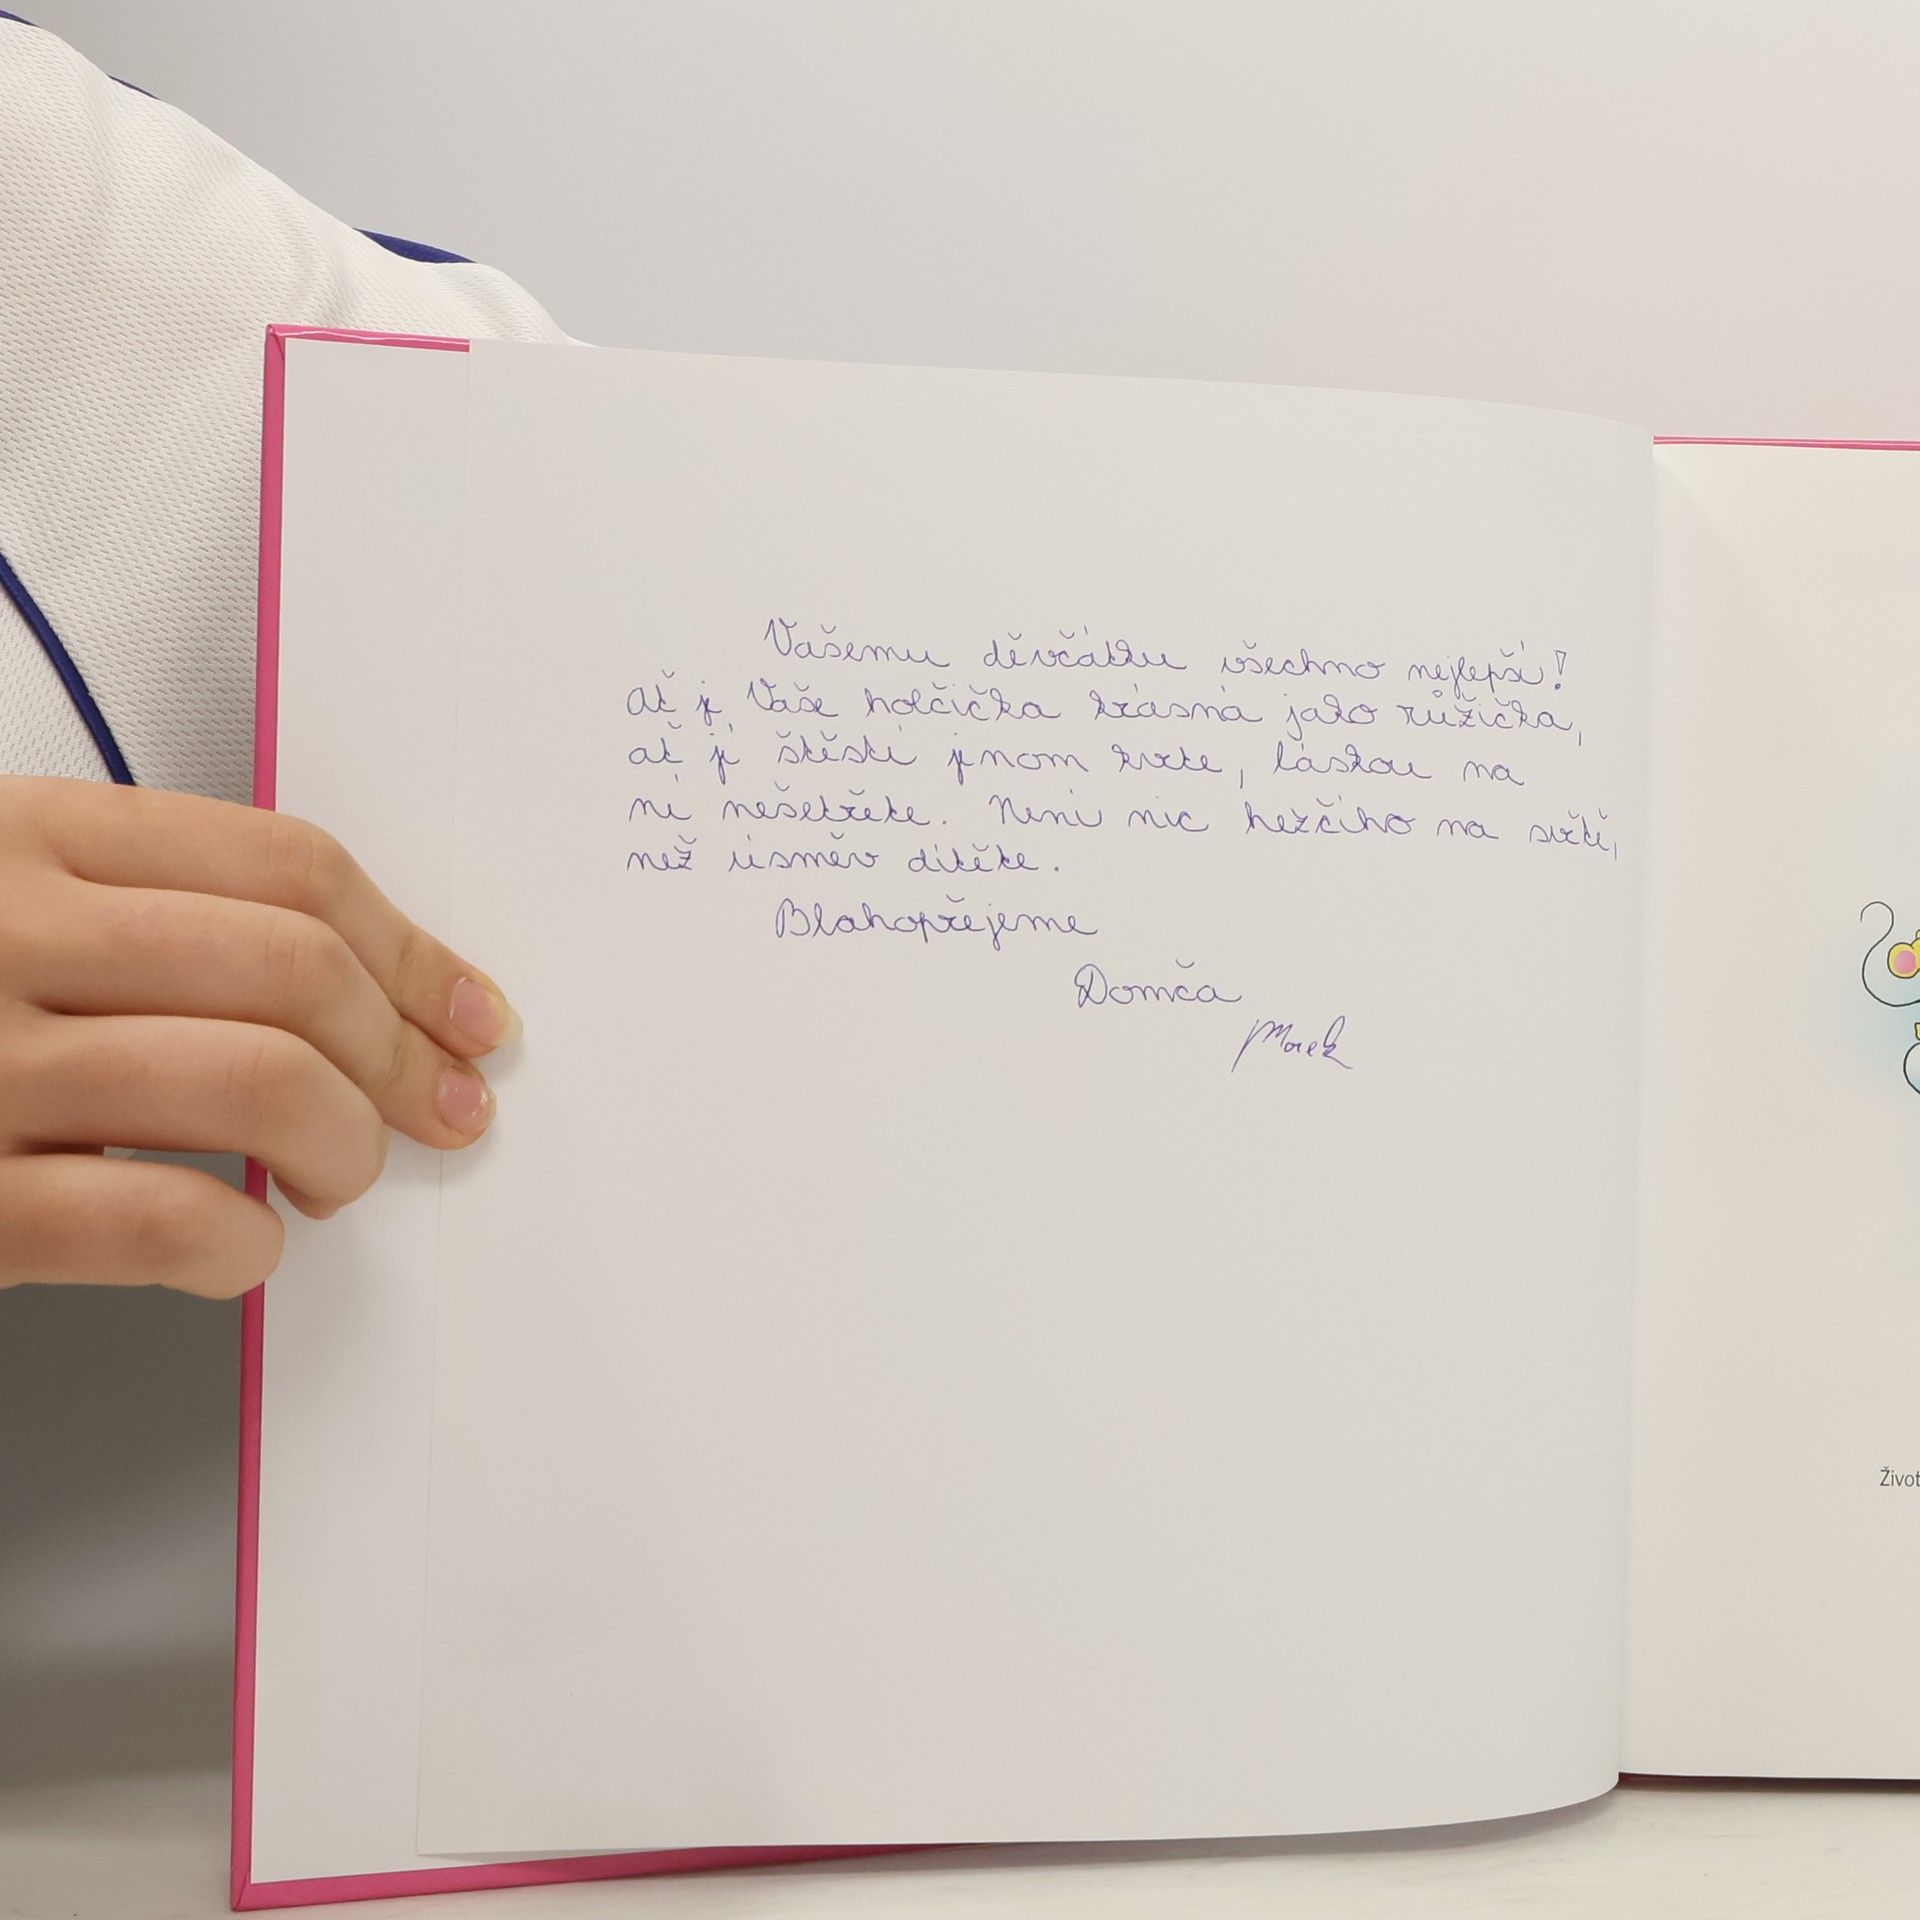 Vašemu děvčátku všechno nejlepší!
Ať je Vaše holčička krásná jako růžička,
ať jí štěstí jenom kvete, láskou na
ní nešetřete. Není nic hezčího na světě,
než úsměv dítěte.
Blahopřejeme
Domča
Marek
Život